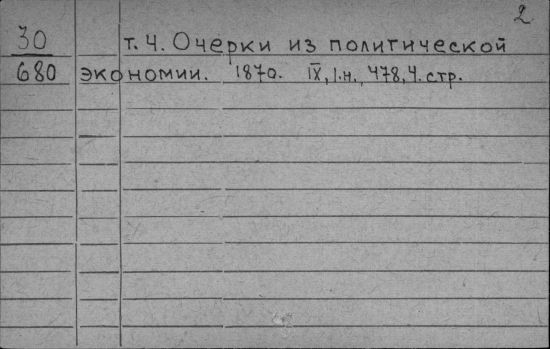 2
30 т. 4. Очерки из политической
680 экономии. 1870. IX, 1.н., 478, 4. стр.